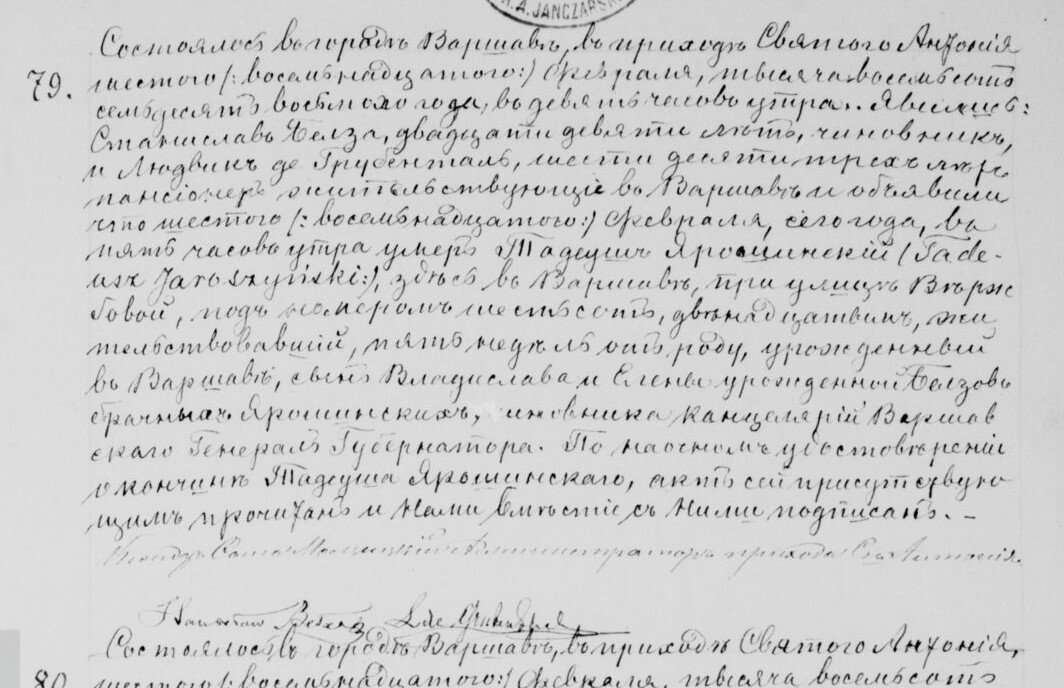 K.A. JANCZARSK
Состоялось въ городѣ Варшавѣ, въ приходѣ Святого Антонія
79. шестого (: восемьнадцатого:) Февраля, тысяча восемьсотъ
семьдесятъ восьмого года, въ девять часовъ утра. Явились:
Станиславъ Белза, двадцати девяти лѣтъ, чиновникъ,
и Людвикъ де Грубенталь, шести десяти трехъ лѣтъ
пансіонеръ жительствующіе въ Варшавѣ и объявили
что шестого (: восемьнадцатого:) Февраля, сего года, въ
пять часовъ утра умеръ Тадеушъ Ярошинскій (Tade-
usz Jaroszyński:), здѣсь въ Варшавѣ, при улицѣ Вѣрж
бовой, подъ номеромъ шестьсотъ, двѣнадцатымъ, жи
тельствовавшій, пять недѣль отъ роду, урожденный
въ Варшавѣ, сынъ Владислава и Елены урожденной Белзовъ
брачныхъ Ярошинскихъ, чиновника канцелярій Варшав
скаго Генералъ Губернатора. По наосномъ удостовѣреніи
о кончинѣ Тадеуша Ярошинскаго, актъ сей присутствую
щимъ прочитанъ и Нами вмѣстѣ съ Ними подписанъ. –
Администраторъ прихода Св. Антонія.
Stanisław Bełza L de Grubenthal
Состоялось въ городѣ Варшавѣ, въ приходѣ Святого Антонія,
80. шестого (: восемьнадцатого:) Февраля, тысяча восемьсотъ